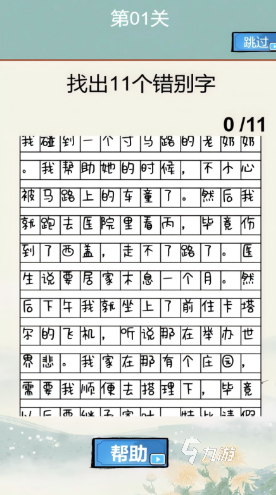 第01关
跳过
找出11个错别字
0 /11
我碰到一个寸马路的老奶奶
。我帮助她的时候，不小心
被马路上的车童了。然后我
就跑去医院里看丙，毕竟伤
到了西盖，走不了路了。医
生说要居家木息一个月。然
后下午我就坐上了前住卡塔
尔的飞机，听说那在举办世
界悲。我家在那有个庄园，
需要我顺便去搭理下，毕竟
帮助
九游